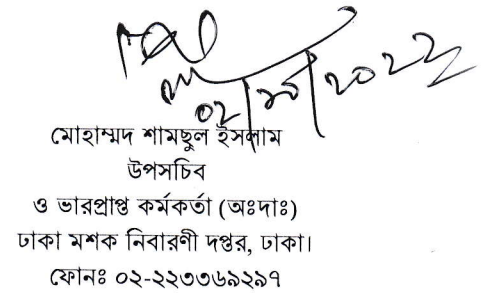 ০২/১০/২০২২
মোহাম্মদ শামছুল ইসলাম
উপসচিব
ও ভারপ্রাপ্ত কর্মকর্তা (অঃদাঃ)
ঢাকা মশক নিবারণী দপ্তর, ঢাকা।
ফোনঃ ০২-২২৩৩৬৯২৯৭